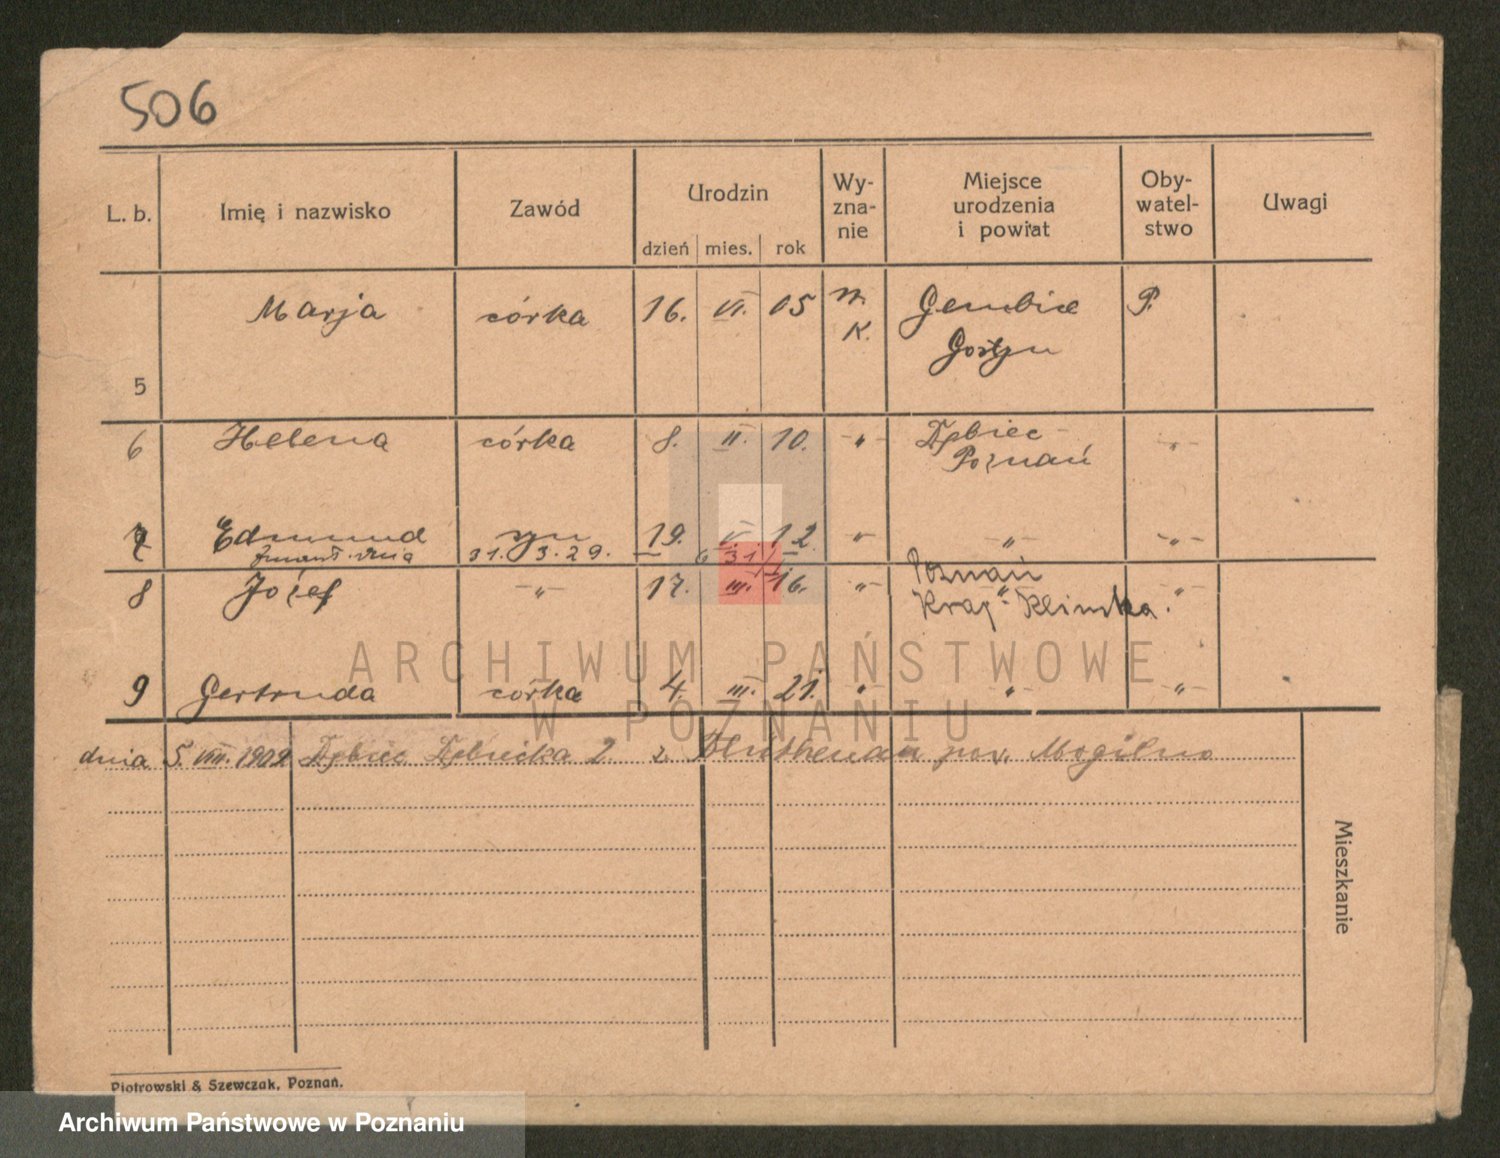 506
L. b. Imię i nazwisko Zawód Urodzin dzień mies. rok Wy-zna-nie Miejsce urodzenia i powiat Oby-watel-stwo Uwagi
5 Marja córka 16. VI. 05 r. k. Gembice Gostyn P.
6 Helena córka 8. II. 10. -"- Dębiec - Poznań -"-
7 Edmund syn 19. V. 12. -"- -"- -"-
zmarł dnia 31. 3. 29.
8 Józef -"- 17. III. 16. -"- Poznań -"-
9 Gertruda córka 4. III. 21. -"- -"- -"-
dnia 5. VIII. 1909 Dębiec Dębiecka 2. z pow. Mogilno
Mieszkanie
Piotrowski & Szewczak, Poznań.
ARCHIWUM PAŃSTWOWE
W POZNANIU
Archiwum Państwowe w Poznaniu